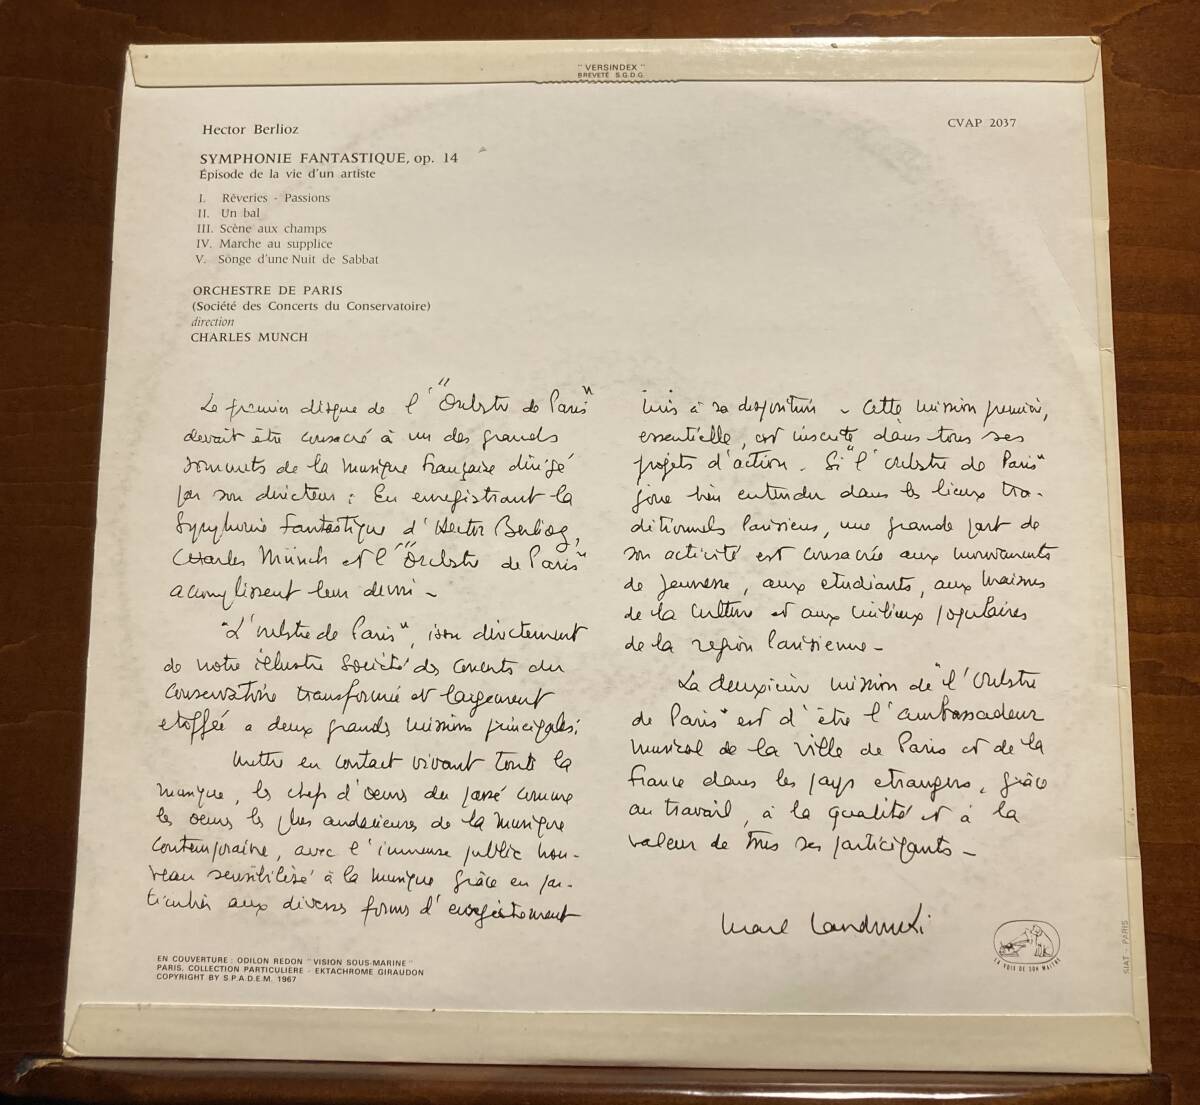 " VERSINDEX "
BREVETÉ S.G.D.G.
Hector Berlioz
CVAP 2037
SYMPHONIE FANTASTIQUE, op. 14
Épisode de la vie d'un artiste
I. Rêveries - Passions
II. Un bal
III. Scène aux champs
IV. Marche au supplice
V. Songe d'une Nuit de Sabbat
ORCHESTRE DE PARIS
(Société des Concerts du Conservatoire)
direction
CHARLES MUNCH
Le premier disque de l'"Orchestre de Paris"
devait être consacré à un des grands
sommets de la musique française dirigé
par son directeur : En enregistrant la
Symphonie Fantastique d'Hector Berlioz,
Charles Münch et l'"Orchestre de Paris"
accomplissent leur devoir -
"L'orchestre de Paris", issu directement
de notre illustre Société des Concerts du
Conservatoire transformée et largement
etoffée a deux grandes missions principales :
Mettre en contact vivant toute la
musique, les chefs d'oeuvre du passé comme
les oeuvres les plus audacieuses de la musique
contemporaine, avec l'immense public nou-
veau sensibilisé à la musique grâce en par-
ticulier aux diverses formes d'enregistrement
mis à sa disposition - Cette mission première,
essentielle, est inscrite dans tous ses
projets d'action. Si "l'orchestre de Paris"
joue bien entendu dans les lieux tra-
ditionnels Parisiens, une grande part de
son activité est consacrée aux mouvements
de jeunesse, aux etudiants, aux maisons
de la culture et aux milieux populaires
de la region Parisienne -
La deuxième mission de "l'Orchestre
de Paris" est d'être l'ambassadeur
musical de la ville de Paris et de la
France dans les pays etrangers, grâce
au travail, à la qualité et à la
valeur de tous ses participants -
Marcel Landowski
EN COUVERTURE : ODILON REDON "VISION SOUS-MARINE"
PARIS. COLLECTION PARTICULIÈRE - EKTACHROME GIRAUDON
COPYRIGHT BY S.P.A.D.E.M. 1967
LA VOIX DE SON MAITRE
SIAT - PARIS